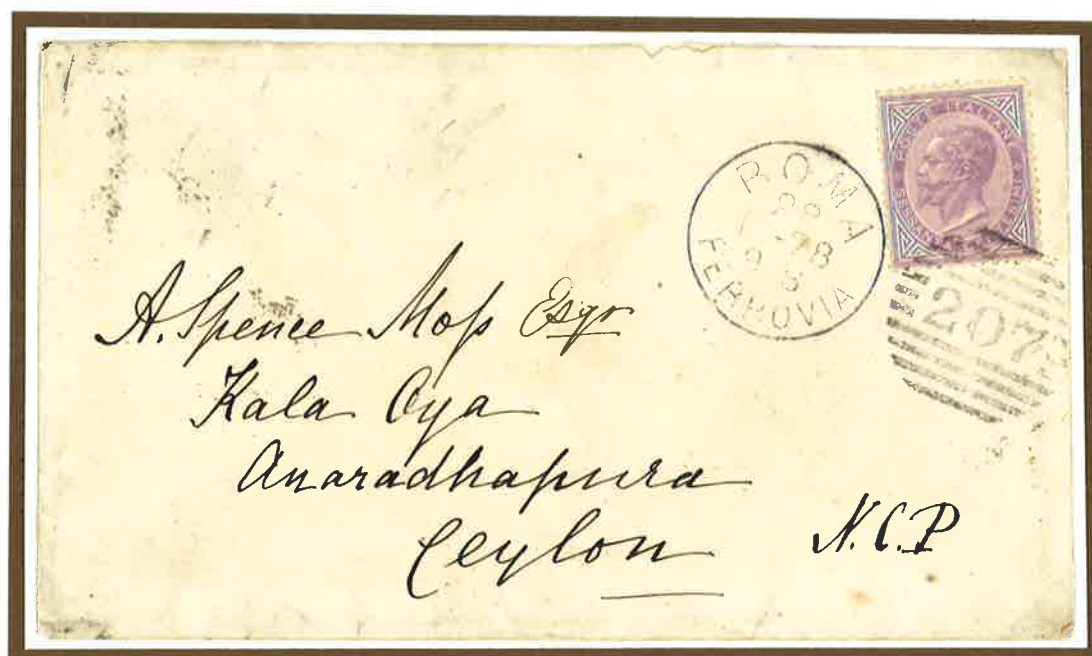 ROMA
78
9 S
FERROVIA
POSTE ITALIANE
2073
A. Spence Moſs Esqr
Kala Oya
Anaradhapura
Ceylon
N.C.P